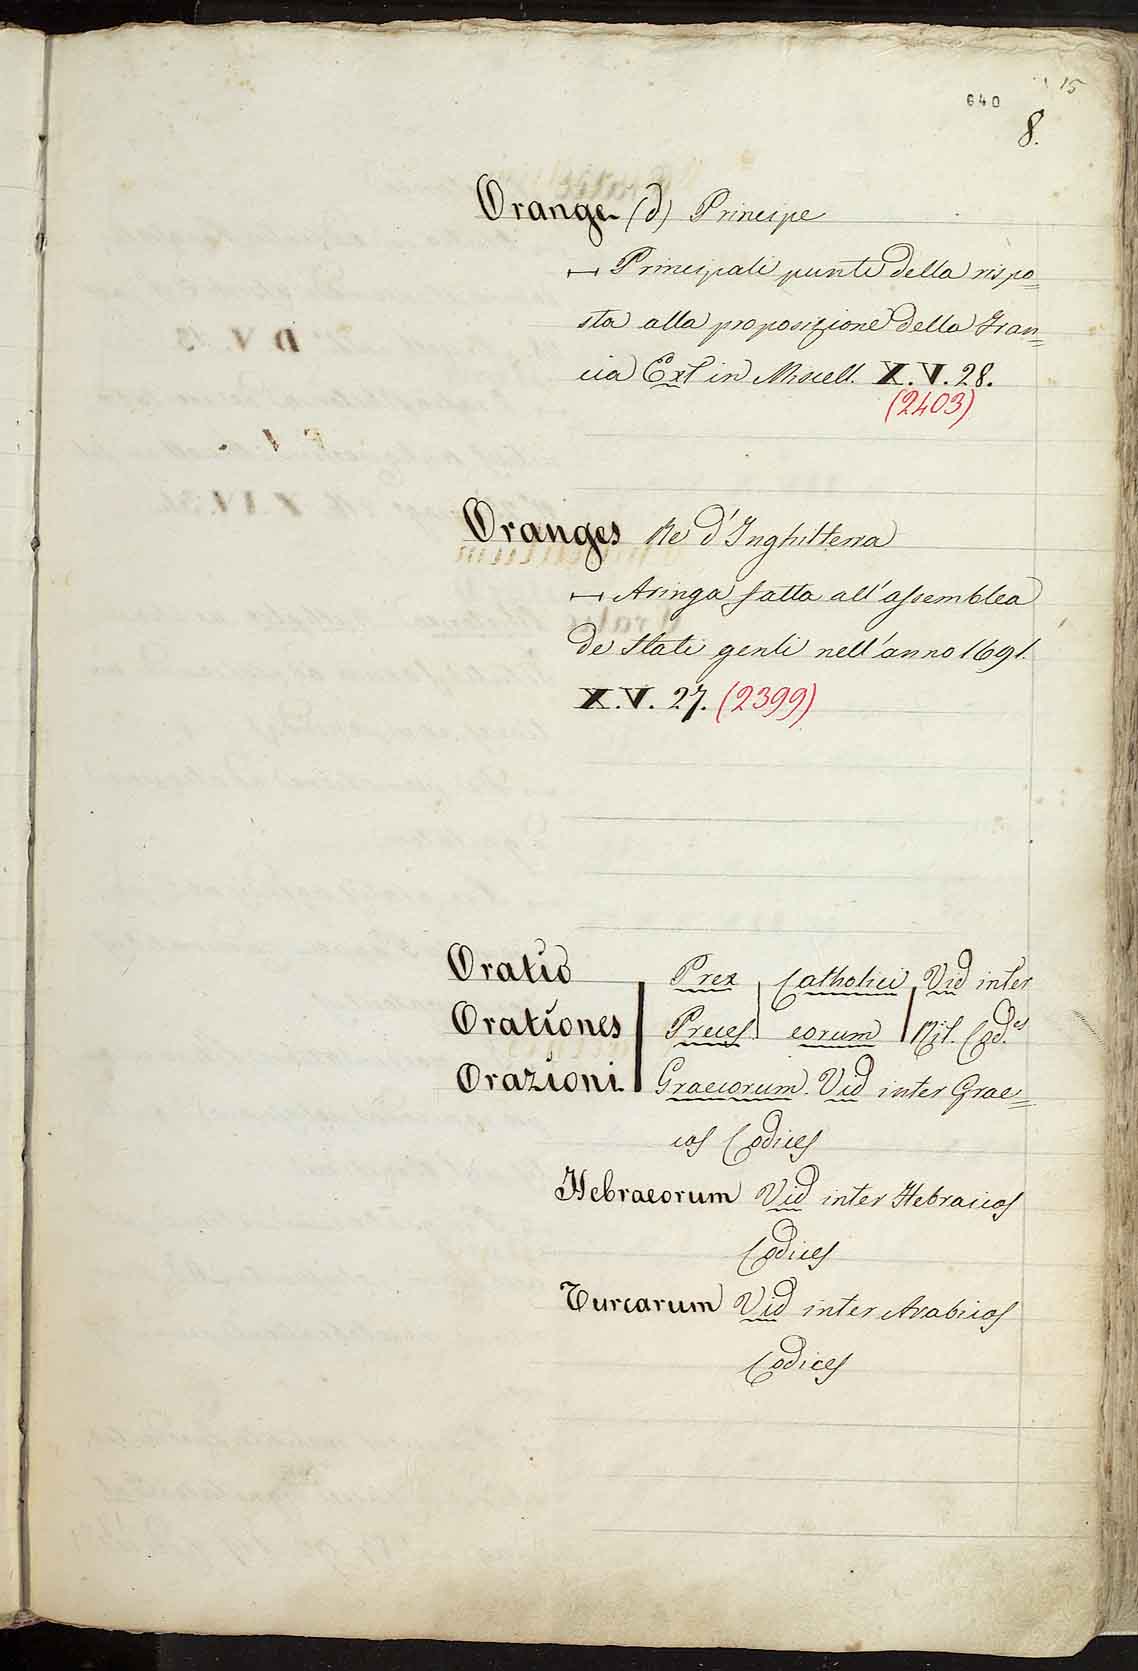 15
640
8.
Orange (d) Principe
Principali punti della rispo=
sta alla proposizione della Fran=
cia Ext in Miscell. X.V. 28.
(2403)
Oranges Re d'Inghilterra
Aringa fatta all'assemblea
de Stati genli nell'anno 1691.
X.V. 27. (2399)
Oratio Prex Catholici Vid inter
Orationes Preces eorum Codes
Orazioni Graecorum. Vid inter Grae=
cos Codices
Hebraeorum Vid inter Hebraicos
Codices
Turcarum Vid inter Arabicos
Codices